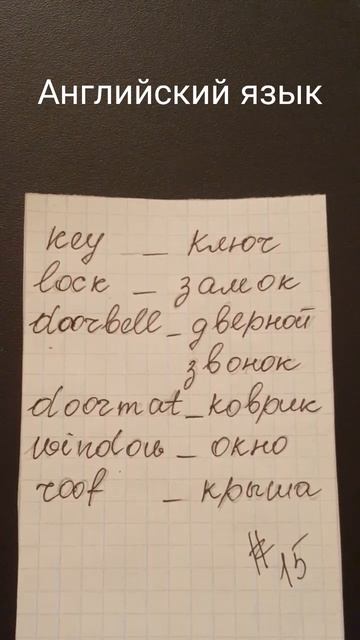 Английский язык
key - ключ
lock - замок
doorbell - дверной
звонок
doormat - коврик
window - окно
roof - крыша
#15